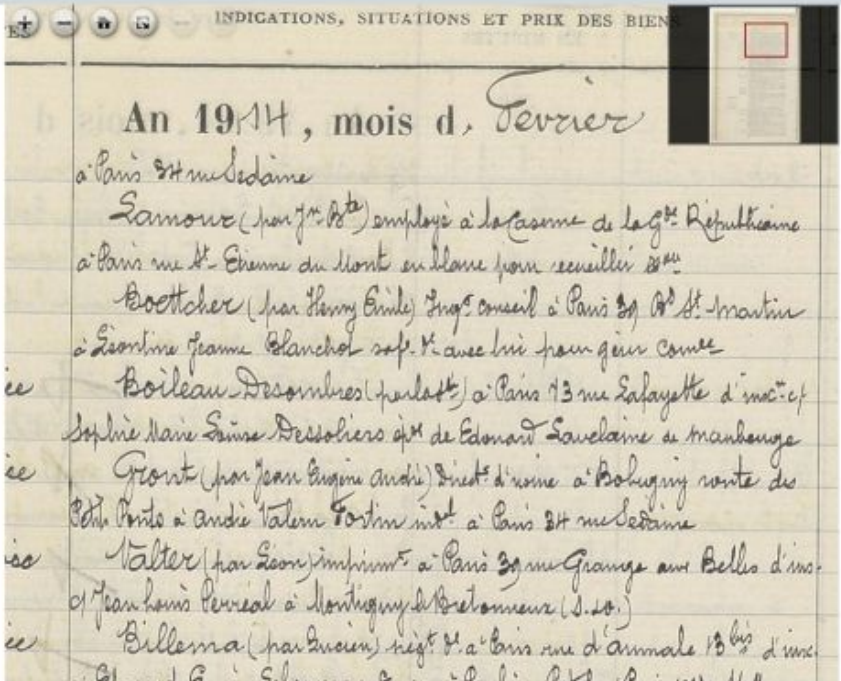 INDICATIONS, SITUATIONS ET PRIX DES BIENS
An 1914, mois d. Fevrier
à Paris 34 rue Sedaine
Lamour (par Jn Bte) employé à la Caserne de la Gde Républicaine
à Paris rue St-Etienne du Mont en blanc pour recueillir son
Boettcher (par Henry Emile) Ingr conseil à Paris 39 Bd St-Martin
à Léontine Jeanne Blanchot avec lui pour gérer comce
ce Boileau-Desombres à Paris 73 rue Lafayette d'insc. c/
Sophie Marie Louise Dessoliers épse de Edouard Lavelaine de Maubeuge
ce Gront (par Jean Eugène André) Directr d'usine à Bobigny route des
Petits Ponts à André Valery Fortin indl à Paris 34 rue Sedaine
Valter (par Léon) imprimr à Paris 39 rue Grange aux Belles d'ins.
c/ Jean Louis Perréal à Montigny le Bretonneux (S. & O.)
ce Billema (par Lucien) négt dt à Paris rue d'Aumale 13 bis d'insc.